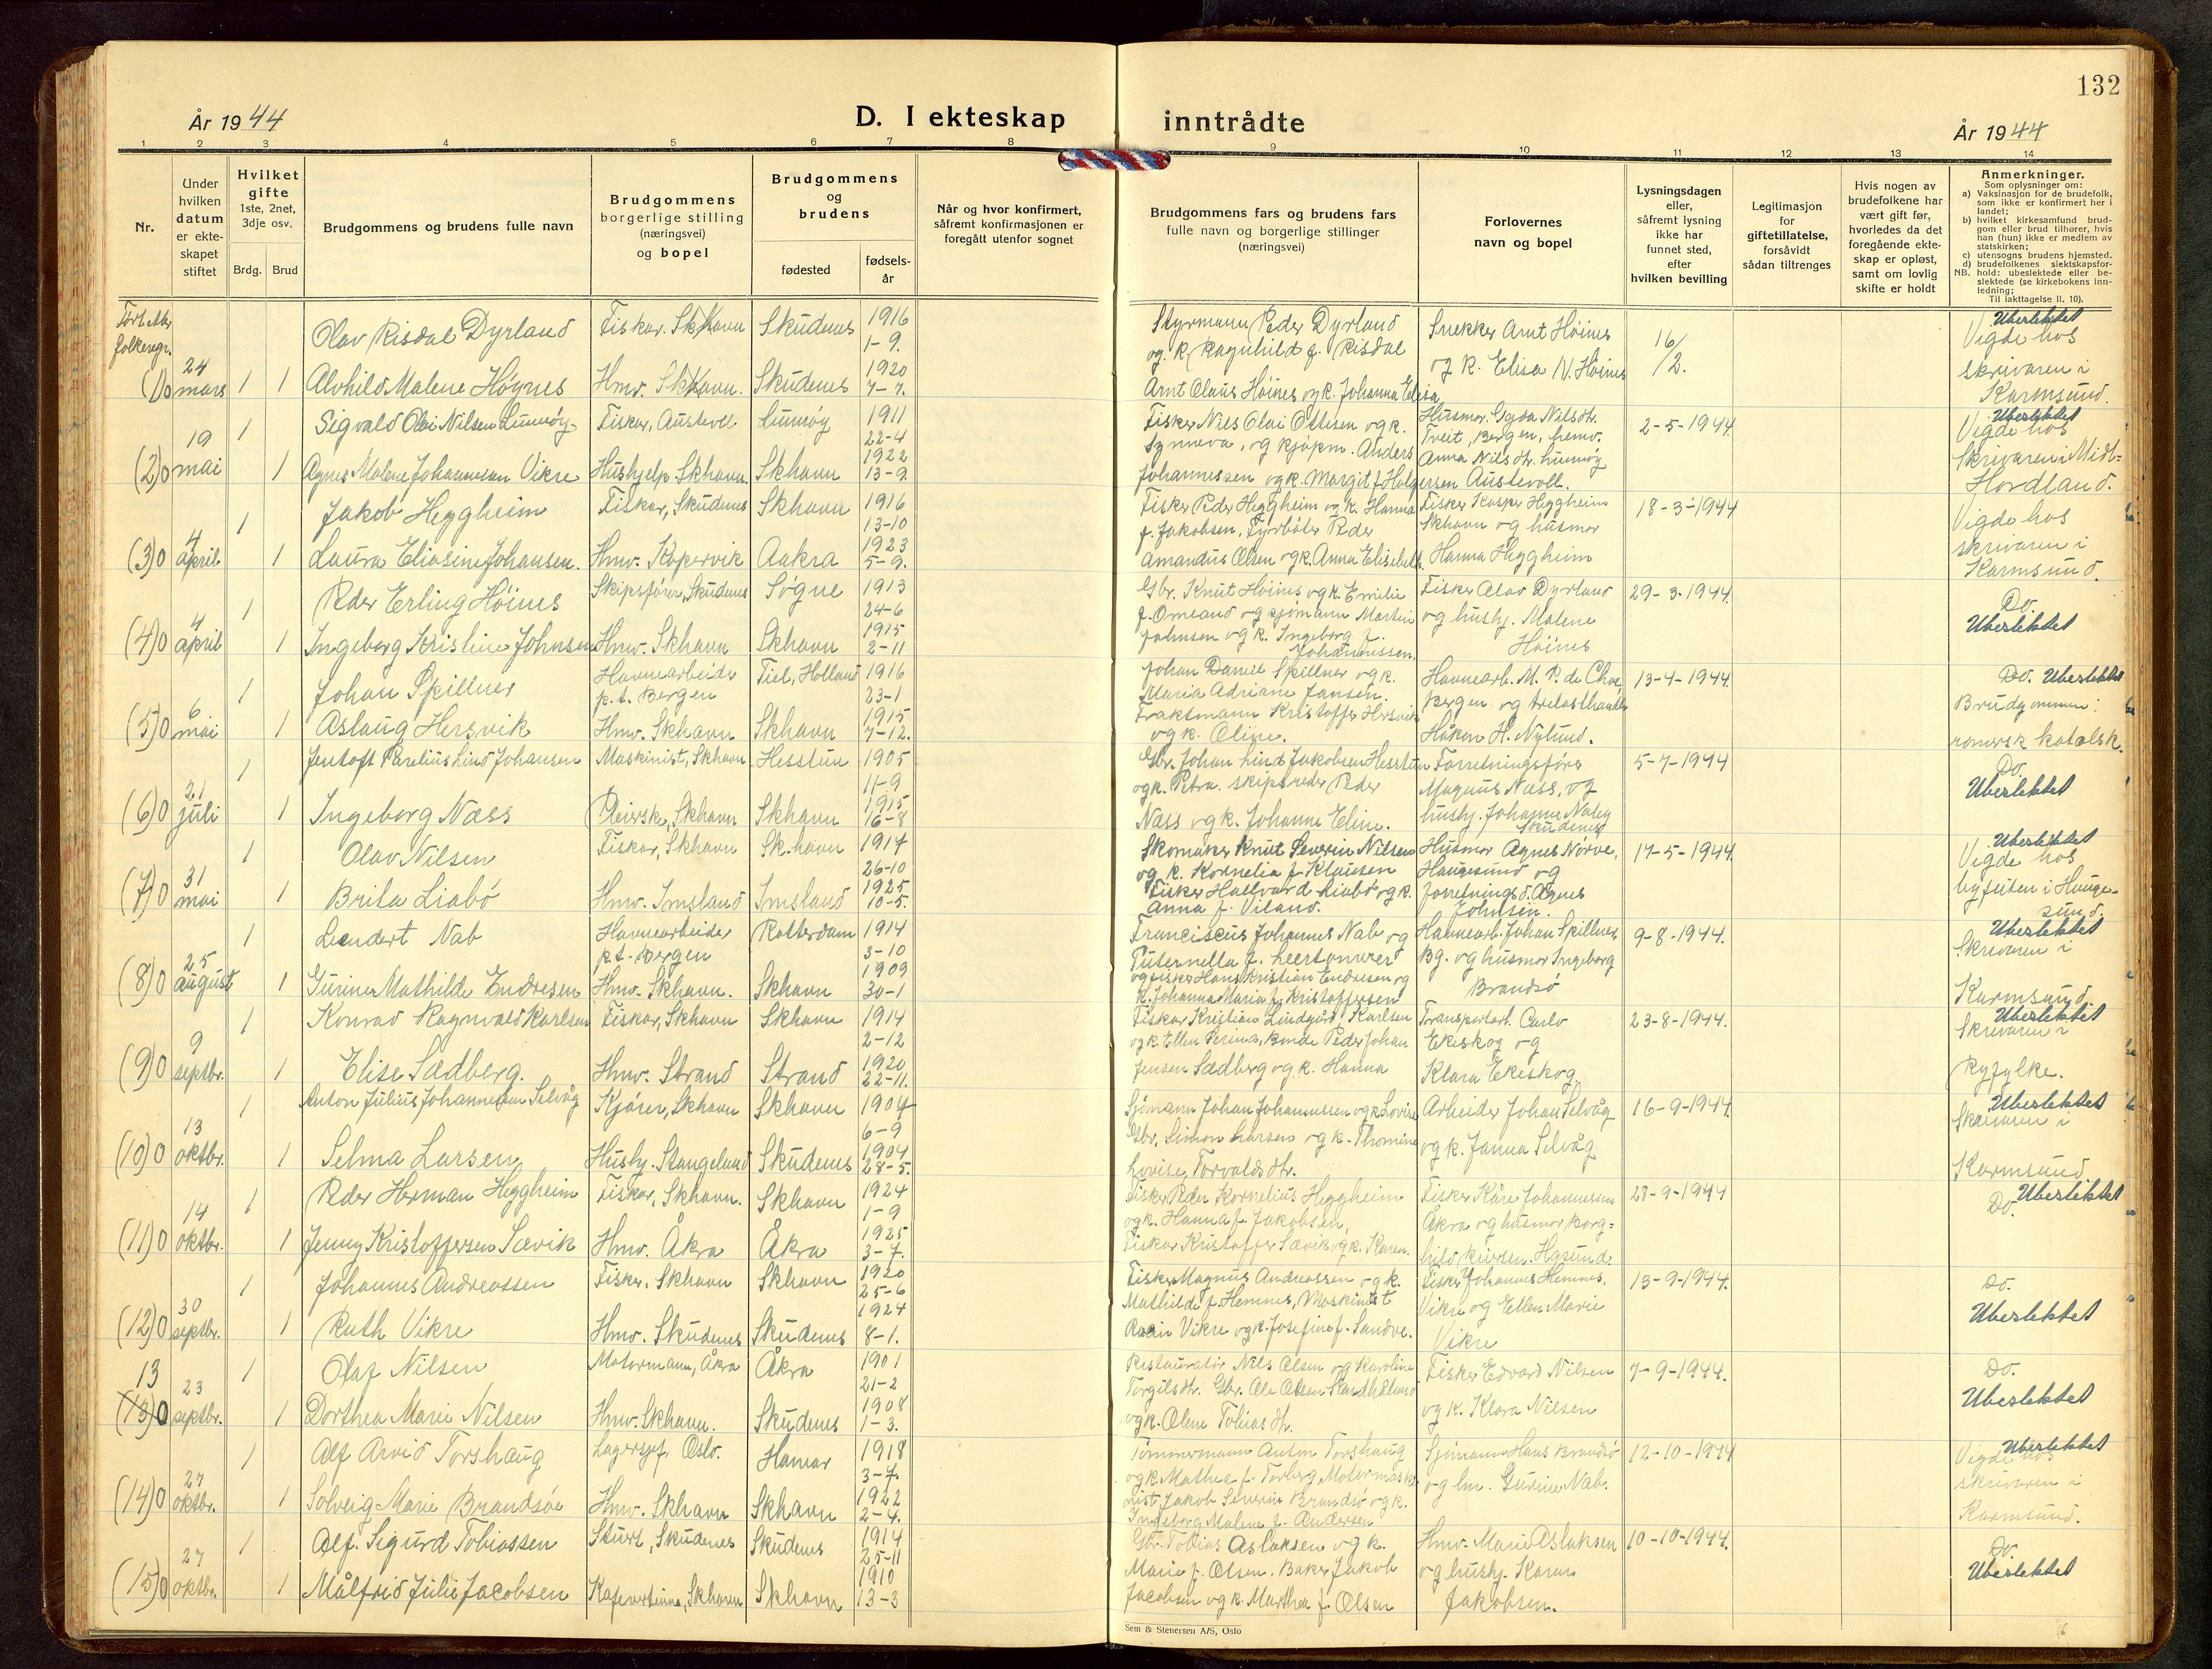 132
År 1944
D. I ekteskap inntrådte
År 1944
1 2 3 4 5 6 7 8 9 10 11 12 13 14
Nr.
Under hvilken datum er ekteskapet stiftet
Hvilket gifte 1ste, 2net, 3dje osv.
Brdg. Brud
Brudgommens og brudens fulle navn
Brudgommens borgerlige stilling (næringsvei) og bopel
Brudgommens og brudens
fødested
fødsels-år
Når og hvor konfirmert, såfremt konfirmasjonen er foregått utenfor sognet
Brudgommens fars og brudens fars fulle navn og borgerlige stillinger (næringsvei)
Forlovernes navn og bopel
Lysningsdagen eller, såfremt lysning ikke har funnet sted, efter hvilken bevilling
Legitimasjon for giftetillatelse, forsåvidt sådan tiltrenges
Hvis nogen av brudefolkene har vært gift før, hvorledes da det foregående ekteskap er opløst, samt om lovlig skifte er holdt
Anmerkninger.
Som oplysninger om:
a) Vaksinasjon for de brudefolk, som ikke er konfirmert her i landet;
b) hvilket kirkesamfund brudgom eller brud tilhører, hvis han (hun) ikke er medlem av statskirken;
c) utensogns brudens hjemsted.
d) brudefolkenes slektskapsforhold: ubeslektede eller beslektede (se kirkebokens innledning;
NB. Til iakttagelse II. 10).
folkeregr.
Olav Risdal Dyrland Fiskar. Skhavn Skudenes 1916 1-9.
Styrmann Peder Dyrland og k. Ragnhild f. Risdal
Snekker Arnt Höines og k. Elisa N. Höines
16/2.
Ubeslektet
Vigde hos skrivaren i Karmsund.
(1)0 24 mars 1 1 Alvhild Malene Höynes Hmv. Skhavn. Skudenes 1920 7-7.
Arnt Olaus Höines og k. Johanna Elisa
Sigvald Olai Nilsen Lunnöy Fisker, Austevoll Lunnöy 1911 22-4
Fisker Niels Olai Ottesen og k. Synneva, og kjöpm. Anders
Husmor. Gyda Nilsdtr. Treit, Bergen, hemv. Anna Nilsdtr. Lunnöy Austevoll.
2-5-1944.
Ubeslektet
Vigde hos Skrivaren i Midt-Hordland.
(2)0 19 mai 1 1 Agnes Malene Johannessen Vikre Hushjelp. Skhavn. Skhavn 1922 13-9.
Johannessen og k. Margit f. Holgersen
Jakob Heggheim Fiskar, Skudenes Skhavn 1916 13-10
Fisker Peder Heggheim og k. Hanna f. Jakobsen, Fyrböter Peder
Fisker Kasper Heggheim Skhavn og husmor Hanna Heggheim
18-3-1944
Vigde hos skrivaren i Karmsund.
(3)0 4 april 1 1 Laura Eliasine Johansen. Hmv. Kopervik Aakra 1923 5-9.
Amandus Olsen og k. Anna Elisebeth.
Peder Erling Höines Skipsförer, Skudenes Søgne 1913 24-6
Gbr. Knut Höines og k. Emilie f. Omland og sjömann Martin
Fisker Olav Dyrland og husfr. Malene Höines
29-3-1944.
Do.
Ubeslektet
(4)0 4 april 1 1 Ingeborg Kristine Johnsen Hmv. Skhavn Skhavn 1915 2-11
Johnsen og k. Ingeborg f. Johannessen.
Johan Spillner Havnearbeider p.t. Bergen Tiel, Holland 1916 23-1
Johan Daniel Spillner og k. Maria Adriane Jansen.
Havnearb. M. P. de Bergen og trelasthandler Håkon H. Nylund.
13-4-1944.
Do. Ubeslektet
Brudgommen: romersk katolsk.
(5)0 6 mai 1 1 Aslaug Hersvik Hmv. Skhavn Skhavn 1915 7-12.
Fraktsmann Kristoffer Hersvik og k. Oline.
Jentoft Parelius Lind Johansen Maskinist, Skhavn Hesstun 1905 11-9
Gbr. Johan Lind Jakobsen Hesstun og k. Petra. skipsreder Peder
Forretningsförer Magnus Næss, og husfr. Johanne Skudenes
5-7-1944
Do.
Ubeslektet
(6)0 21 juli 1 1 Ingeborg Næss Pleierske, Skhavn Skhavn 1915 16-8
Næss og k. Johanne Eline.
Olav Nilsen Fisker, Skhavn Sk.havn 1914 26-10
Skomaker Knut Severin Nilsen og k. Kornelia f. Klausen
Husmor Agnes Nörve, Haugesund og forretningsd. Agnes Johnsen.
17-5-1944.
Ubeslektet
Vigde hos byfuten i Haugesund.
(7)0 31 mai 1 1 Brita Liabö Hmv. Imsland Imsland 1925 10-5.
Fisker Hallvard Liabö og k. Anna f. Viland.
Leendert Nab Havnearbeider p.t. Bergen Rotterdam 1914 3-10
Franciscus Johannes Nab og
Havnearb. Johan Spillner Bg. og husmor Ingeborg Brandsö
9-8-1944.
Ubeslektet
Skrivaren i Karmsund.
(8)0 25 august 1 1 Gurine Mathilde Endresen Hmv. Skhavn. Skhavn 1909 30-1
og fisker Hans Kristian Endresen og k. Johanna Maria f. Kristoffersen
Konrad Ragnvald Karlsen Fiskar, Skhavn Skhavn 1914 2-12
Fisker Kristian Lindgård Karlsen og k. Ellen Serina, Bonde Peder Johan
Transportarb. Carlo Ekeskog og Klara Ekeskog
23-8-1944.
Ubeslektet
Skrivaren i Ryfylke.
(9)0 9 septbr. 1 1 Elise Sædberg. Hmv. Strand Strand 1920 22-11.
Jensen Sædberg og k. Hanna
Anton Julius Johannessen Selvåg Kjörer, Skhavn Skhavn 1904 6-9
Sjömann Johan Johannessen og k. Lovise
Arbeider Johan Selvåg og k. Janna Selvåg
16-9-1944.
Ubeslektet
Skrivaren i Karmsund
(10)0 13 oktbr. 1 1 Selma Larsen Husby. Stangeland Skudenes 1904 28-5.
Gbr. Simon Larsen og k. Thomine Lovise Torvaldsdtr.
Peder Herman Heggheim Fiskar, Skhavn. Skhavn 1924 1-9
Fisker Peder Kornelius Heggheim og k. Hanna f. Jakobsen,
Fisker Kåre Johannessen Åkra og husmor Borghild
28-9-1944
Ubeslektet
Do.
(11)0 14 oktbr. 1 1 Jenny Kristoffersen Sævik Hmv. Åkra Åkra 1925 3-7.
Fisker Kristoffer Sævik og k. Karen.
Johannes Andreassen Fisker, Skhavn Skhavn 1920 25-6
Fisker Magnus Andreassen og k. Mathilde f. Hemnes, Maskinist
Fisker Johannes Hemnes. Vikre og Ellen Marie Vikre
13-9-1944.
Do.
Ubeslektet
(12)0 30 septbr. 1 1 Ruth Vikre Hmv. Skudenes Skudenes 1924 8-1.
Vikre og k. Josefine f. Sandve.
Olaf Nilsen Motormann, Åkra Åkra 1901 21-2
Restauratör Nils Olsen og Karoline Torgilsdtr. Gbr. Ole Olsen
Fisker Edvard Nilsen og k. Klara Nilsen
7-9-1944.
Do.
Ubeslektet
13 (13)0 23 septbr. 1 1 Dorthea Marie Nilsen Hmv. Skhavn. Skudenes 1908 1-3.
og k. Olene Tobiasdtr.
Alf Arvid Torshaug Lagersjef, Oslo. Hamar 1918 3-7.
Tömmermann Anton Torshaug og k. Mathea f. Torberg. Motormaskinist
Sjömann Hans Brandsö og hm. Gurine Nab.
12-10-1944
Ubeslektet
Vigde hos skrivaren i Karmsund.
(14)0 27 oktbr. 1 1 Solveig Marie Brandsöe Hmv. Skhavn Skhavn 1922 2-4.
Jakob Severin Brandsö og k. Ingeborg Malene f. Andersen
Alf. Sigurd Tobiassen Stuert, Skudenes Skudenes 1914 25-11
Gbr. Tobias Aslaksen og k. Marie f. Olsen. Baker Jakob
Hmv. Marie Aslaksen og husfr. Karen Jakobsen.
10-10-1944.
Do.
Ubeslektet
(15)0 27 oktbr. 1 1 Målfrid Julie Jacobsen Kafevertinne, Skhavn Skhavn 1910 13-3
Jacobsen og k. Marthea f. Olsen
Sem & Stenersen A/S, Oslo